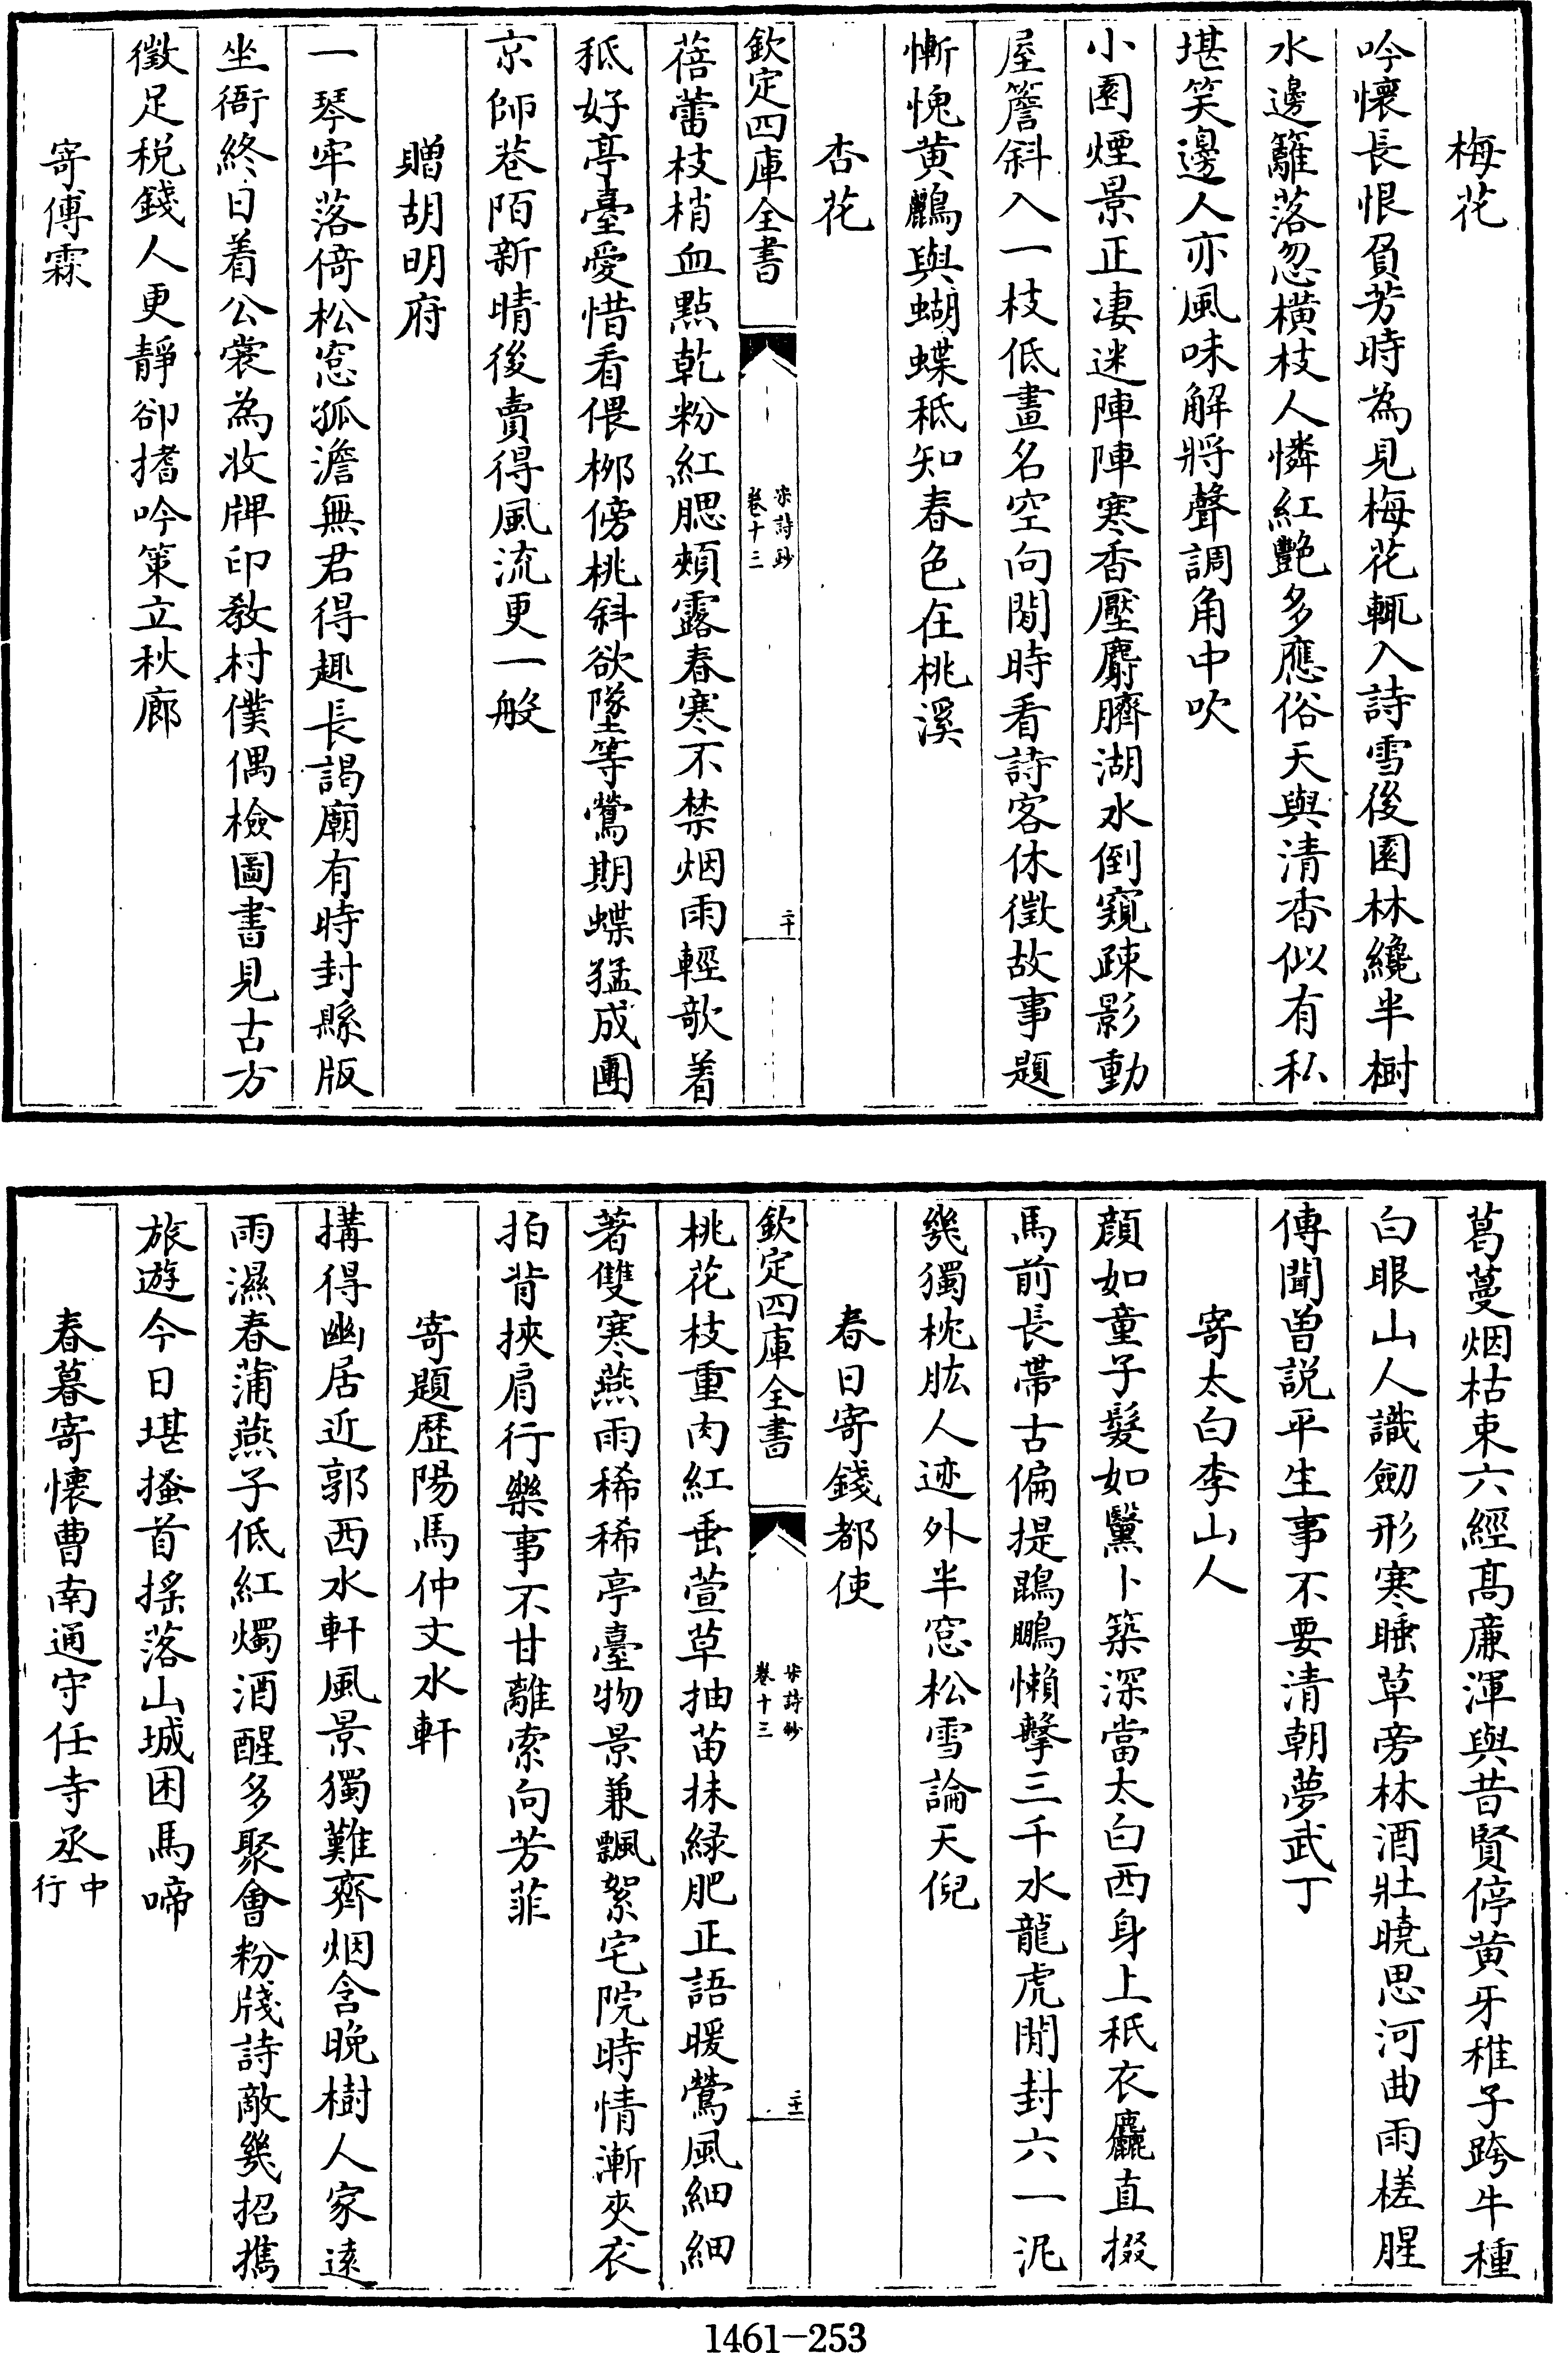 梅花
吟懷長恨負芳時為見梅花輒入詩雪後園林纔半樹
水邊籬落忽橫枝人憐紅艷多應俗天與清香似有私
堪笑邊人亦風味解將聲調角中吹
小園煙景正凄迷陣陣寒香壓麝臍湖水倒窺疎影動
屋簷斜入一枝低畫名空向閒時看詩客休徵故事題
慚愧黄鸝與蝴蝶秪知春色在桃溪
杏花
欽定四庫全書
宋詩鈔
卷十三
二十
蓓蕾枝梢血點乾粉紅腮頰露春寒不禁烟雨輕欹着
秪好亭臺愛惜看偎柳傍桃斜欲墜等鶯期蝶猛成團
京師巷陌新晴後賣得風流更一般
贈胡明府
一琴牢落倚松窓孤澹無君得趣長謁廟有時封縣版
坐衙終日着公裳為收牌印教村僕偶檢圖書見古方
徵足税錢人更靜卻搘吟策立秋廊
寄傅霖
葛蔓烟枯束六經髙亷渾與昔賢停黄牙稚子跨牛種
白眼山人識劒形寒睡草旁林酒壯曉思河曲雨槎腥
傳聞曽説平生事不要清朝夢武丁
寄太白李山人
顔如童子髮如黳卜築深當太白西身上秖衣麤直掇
馬前長帶古偏提鷐鵬懶擊三千水龍虎閒封六一泥
幾獨枕肱人迹外半窓松雪論天倪
春日寄錢都使
欽定四庫全書
宋詩鈔
卷十三
二十一
桃花枝重肉紅垂萱草抽苗抹緑肥正語暖鶯風細細
著雙寒燕雨稀稀亭臺物景兼飄絮宅院時情漸夾衣
拍背挾肩行樂事不甘離索向芳菲
寄題歴陽馬仲文水軒
搆得幽居近郭西水軒風景獨難齊烟含晚樹人家遠
雨濕春蒲燕子低紅燭酒醒多聚會粉牋詩敵幾招攜
旅遊今日堪搔首揺落山城困馬啼
春暮寄懷曹南通守任寺丞中行
1461-253